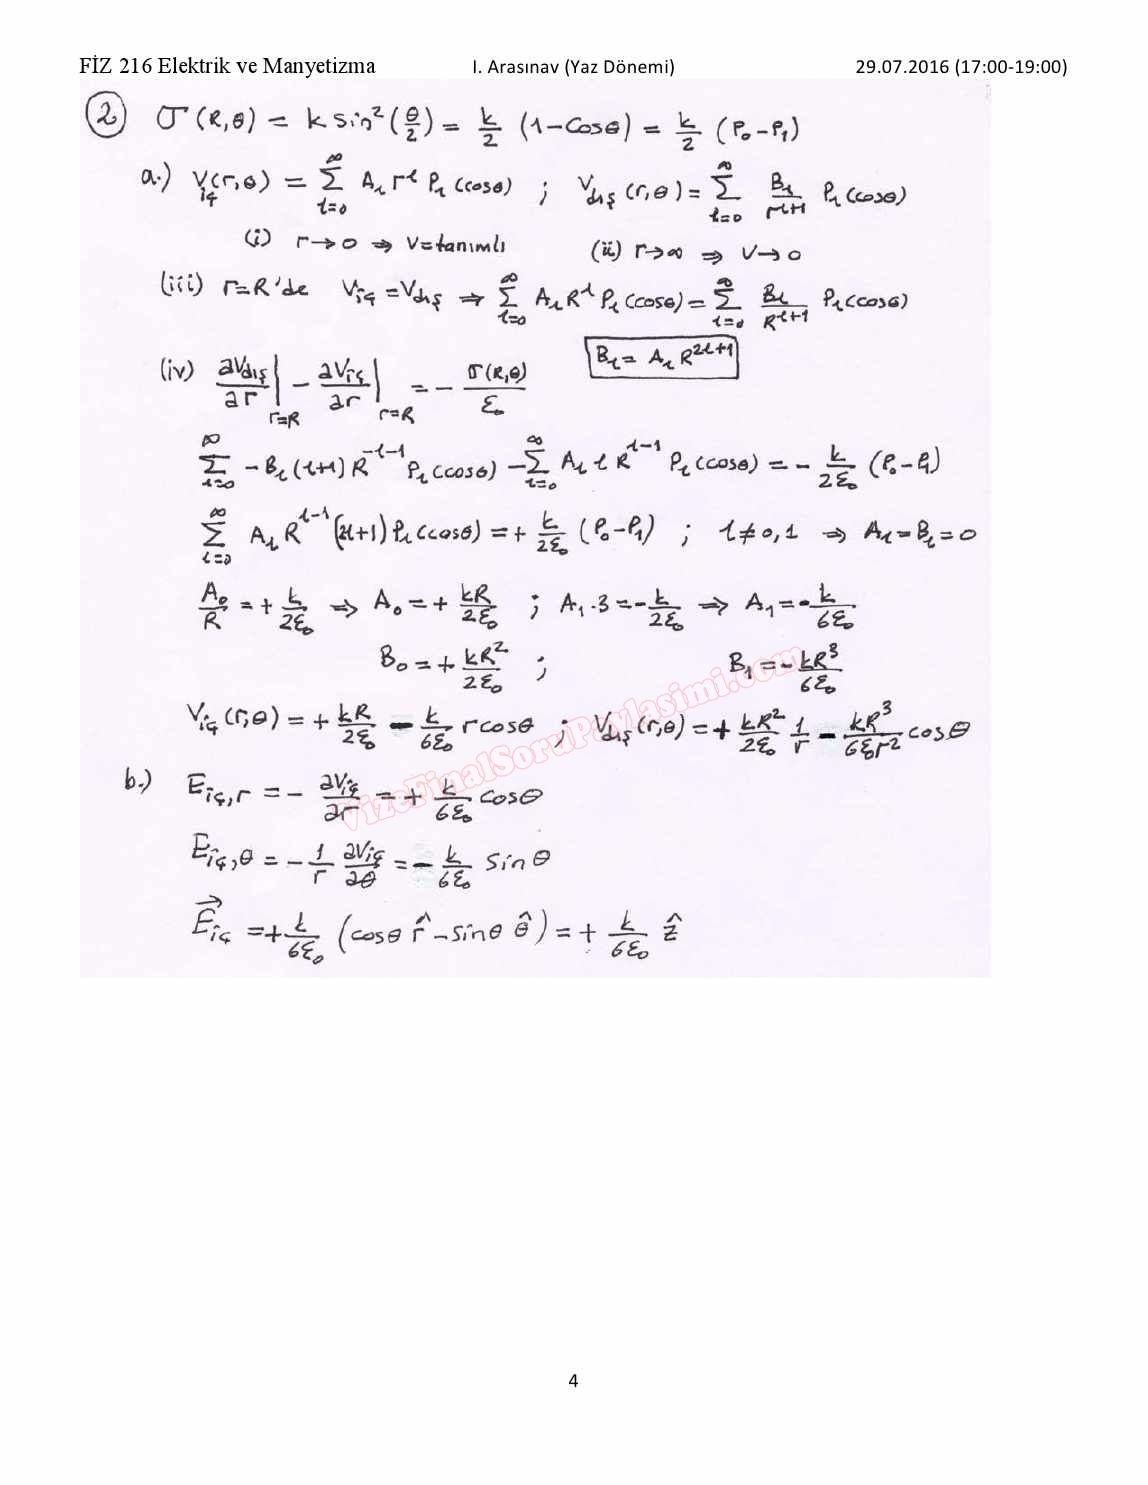 FİZ 216 Elektrik ve Manyetizma I. Arasınav (Yaz Dönemi) 29.07.2016 (17:00-19:00)
(2) σ(R,θ) = k sin²(θ/2) = k/2 (1-cosθ) = k/2 (P₀-P₁)
a.) V_iç(r,θ) = Σ_{l=0}^∞ A_l r^l P_l(cosθ) ; V_dış(r,θ) = Σ_{l=0}^∞ B_l/r^{l+1} P_l(cosθ)
(i) r→0 ⇒ V=tanımlı (ii) r→∞ ⇒ V→0
(iii) r=R'de V_iç = V_dış ⇒ Σ_{l=0}^∞ A_l R^l P_l(cosθ) = Σ_{l=0}^∞ B_l/R^{l+1} P_l(cosθ)
B_l = A_l R^{2l+1}
(iv) ∂V_dış/∂r |_{r=R} - ∂V_iç/∂r |_{r=R} = - σ(R,θ)/ε₀
Σ_{l=0}^∞ -B_l (l+1) R^{-l-1} P_l(cosθ) - Σ_{l=0}^∞ A_l l R^{l-1} P_l(cosθ) = - k/2ε₀ (P₀-P₁)
Σ_{l=0}^∞ A_l R^{l-1} (2l+1) P_l(cosθ) = + k/2ε₀ (P₀-P₁) ; l≠0,1 ⇒ A_l=B_l=0
A₀/R = + k/2ε₀ ⇒ A₀ = + kR/2ε₀ ; A₁.3 = - k/2ε₀ ⇒ A₁ = - k/6ε₀
B₀ = + kR²/2ε₀ ; B₁ = - kR³/6ε₀
V_iç(r,θ) = + kR/2ε₀ - k/6ε₀ r cosθ ; V_dış(r,θ) = + kR²/2ε₀ 1/r - kR³/6ε₀r² cosθ
b.) E_iç,r = - ∂V_iç/∂r = + k/6ε₀ cosθ
E_iç,θ = - 1/r ∂V_iç/∂θ = - k/6ε₀ sinθ
E⃗_iç = + k/6ε₀ (cosθ r̂ - sinθ θ̂) = + k/6ε₀ ẑ
VizeFinalSoruPaylasimi.com
4